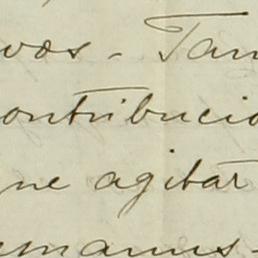 vos - Tan
contribucio
que agitar
emanus-